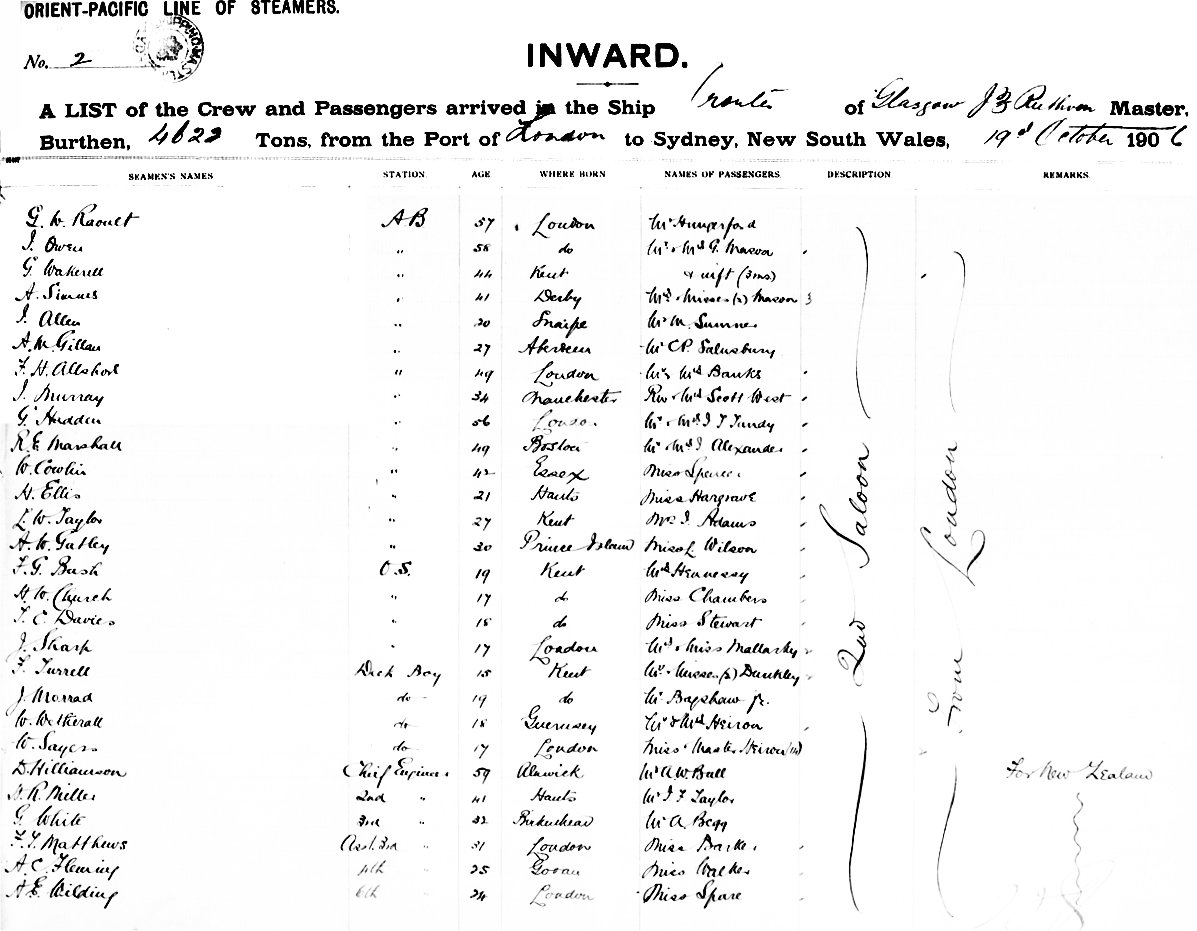 ORIENT-PACIFIC LINE OF STEAMERS.
No. 2
INWARD.
A LIST of the Crew and Passengers arrived in the Ship Orontes of Glasgow J F Ruthven Master,
Burthen, 4622 Tons, from the Port of London to Sydney, New South Wales, 19th October 1906
SEAMEN'S NAMES STATION AGE WHERE BORN NAMES OF PASSENGERS DESCRIPTION REMARKS
G. W. Raoult AB 57 London Mr Hungerford
J. Owen " 58 do Mr & Mrs G. Mason
G. Wakerell " 44 Kent & inft (3ms)
A. Simms " 41 Derby Mrs & Misses (2) Mason 3
J. Allen " 20 Mr M. Sumner
A. McGillan " 27 Aberdeen Mr C P. Salusbury
F. H. Allshorn " 49 London Mr & Mrs Banks
J. Murray " 34 Manchester Rev & Mrs Scott West
G. Hudden " 56 London Mr & Mrs J T Tundy
R. E. Marshall " 49 Boston Mr & Mrs J Alexander
W. Cowlin " 42 Essex Miss Spencer
H. Ellis " 21 Hants Miss Hargrave
L. W. Taylor " 27 Kent Mrs J. Adams
A. W. Gatley " 30 Prince Island Miss L Wilson
F. G. Bush O.S. 19 Kent Mrs Hennessy
H. W. Church " 17 do Miss Chambers
T. C. Davies " 18 do Miss Stewart
J. Sharp " 17 London Mrs & Miss Mallarky
F. Turrell Deck Boy 15 Kent Mr & Misses (2) Dunkley
J. Morrad do 19 do Mr Bagshaw Jr.
W. Wetherall do 18 Guernsey Mr & Mrs Heiron
W. Sayers do 17 London Miss & Master Heiron
D. Williamson Chief Engineer 59 Alnwick Mr A. W. Ball For New Zealand
H. R. Miller 2nd " 41 Hants Mr J F Taylor
G. White 3rd " 32 Birkenhead Mr A. Begg
F. J. Matthews Asst. 3rd " 31 London Miss Barker
A. C. Fleming 4th " 25 Govan Miss Walker
A. E. Wilding 6th " 24 London Miss Spare
2nd Saloon
From London